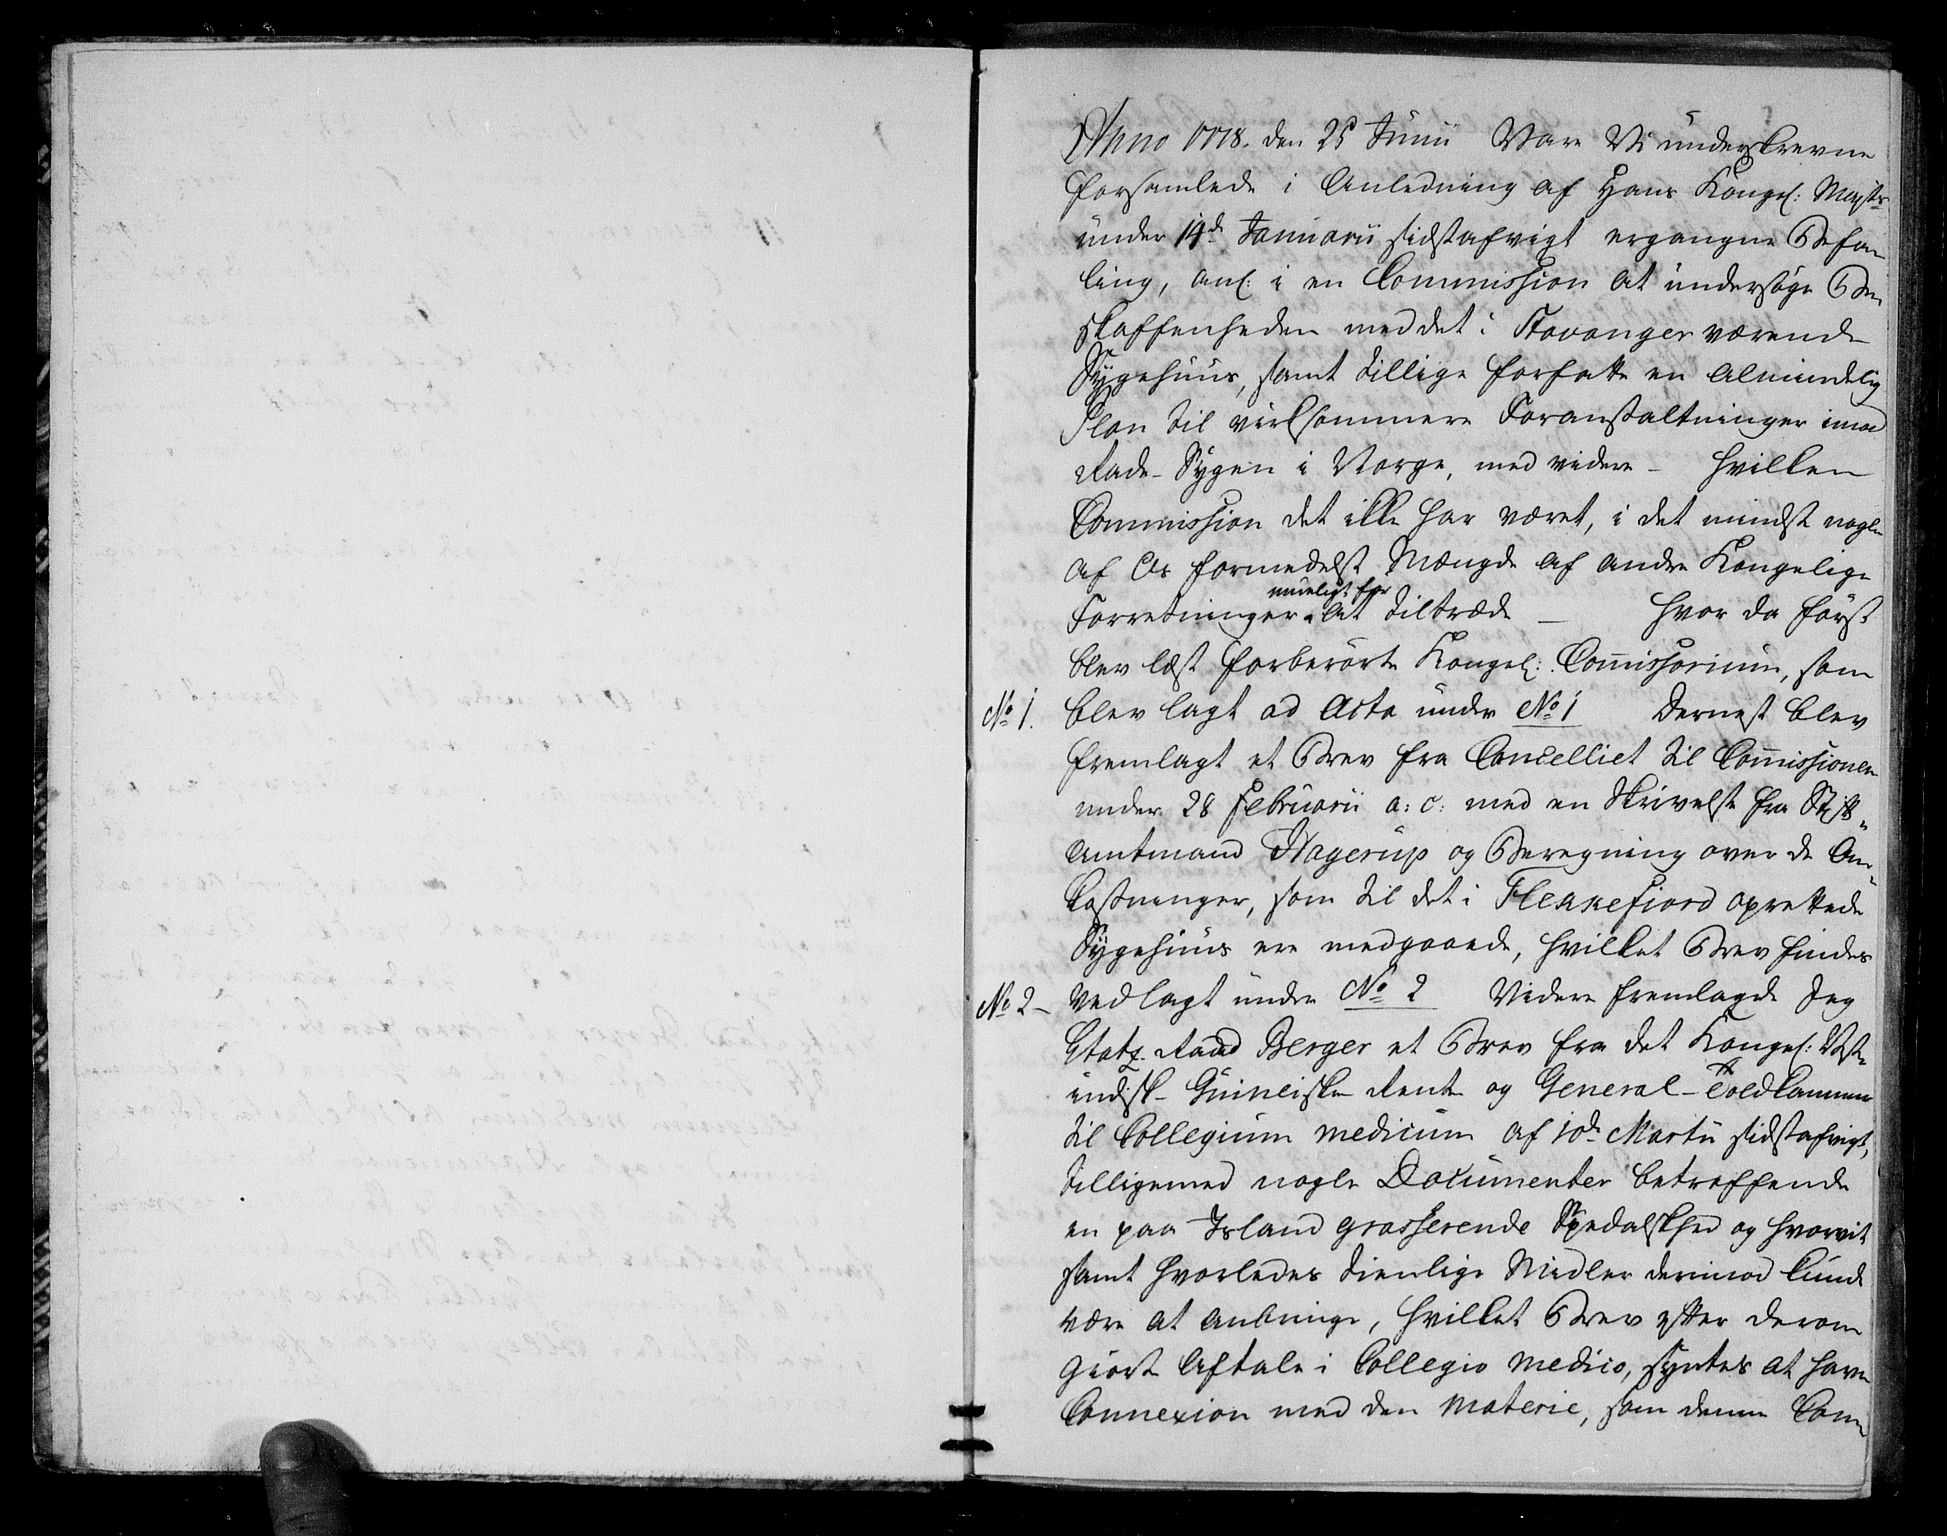 Anno 1778. den 25 Junii Vare Vi underskrevne
forsamlede i Anledning af Hans Kongel: Majsts
under 14de Januarii sidstafvigt ergangne Befa-
ling, anl: i en Commission at undersøge Be-
skaffenheden med det i Stavanger værende
Sygehuus, samt tillige forfatte en almindelig
Plan til virksommere Foranstaltninger imod
Rade-Sygen i Norge, med videre – hvilken
Commission det ikke har været, i det mindste nogle
af Os formedelst Mængde af andre Kongelige
mueligt for
Forretninger at tiltræde – hvor da først
blev læst forberørte Kongel: Commissorium, som
No 1. blev lagt ad Acta under No 1 Dernest blev
fremlagt et Brev fra Cancelliet til Commissionen
under 28 Februarii a: c: med en Skrivelse fra Stift-
amtmand Hagerup og Beregning over de Om-
kostninger, som til det i Flekkefiord oprettede
Sygehuus ere medgaaede, hvilket Brev findes
No 2 – vedlagt under No 2 Videre fremlagde Jeg
Etatz-Raad Berger et Brev fra det Kongel: Vest-
indisk-Guineiske Rente og General-Toldkammer
til Collegium medicum af 10de Martii sidstafvigt,
tilligemed nogle Documenter betreffende
en paa Island grasserende Spedalskhed og hvorvit
samt hvorledes tienlige Midler derimod kunde
være at anbringe, hvilket Brev efter derom
giort Aftale i Collegio medico, syntes at have
Connexion med den Materie, som denne Com-